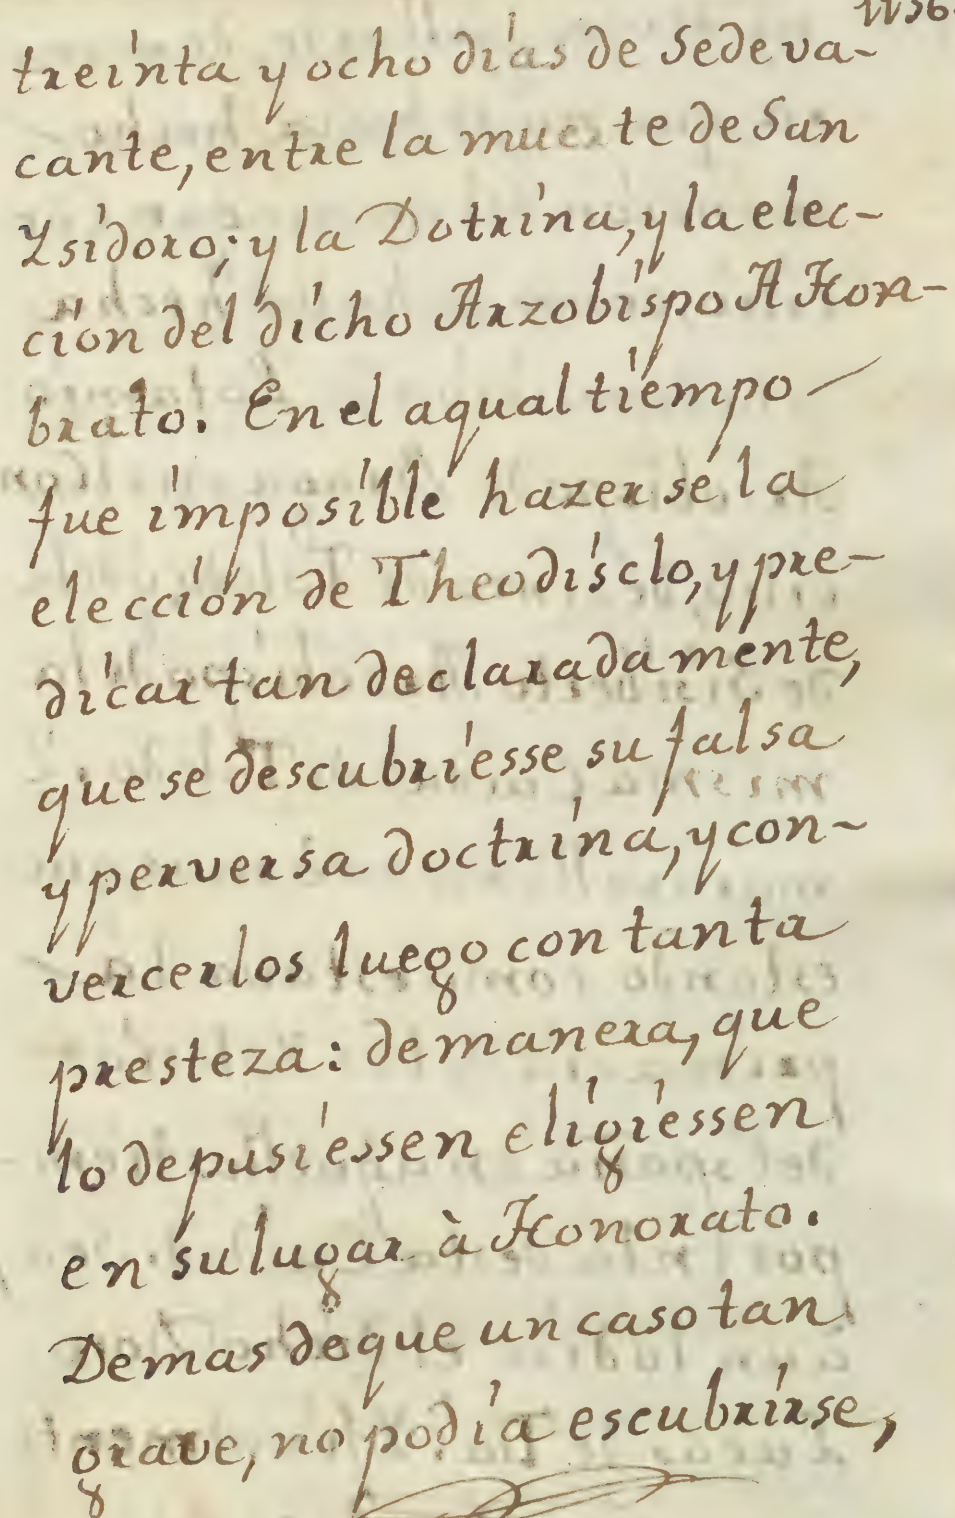 treinta y ocho días de Sedeva-
cante, entre la muerte de San
Ysidoro; y la Dotrina, y la elec-
ción del dicho Arzobispo A Hon-
brato. En el aqual tiempo
fue imposible hazerse la
elección de Theodisclo, y pre-
dicar tan declaradamente,
que se descubriesse su falsa
y perversa doctrina, y con-
vercerlos luego con tanta
presteza: de manera, que
lo depusiessen eligiessen
en su lugar à Honorato.
Demas de que un caso tan
grave, no podía escubrirse,